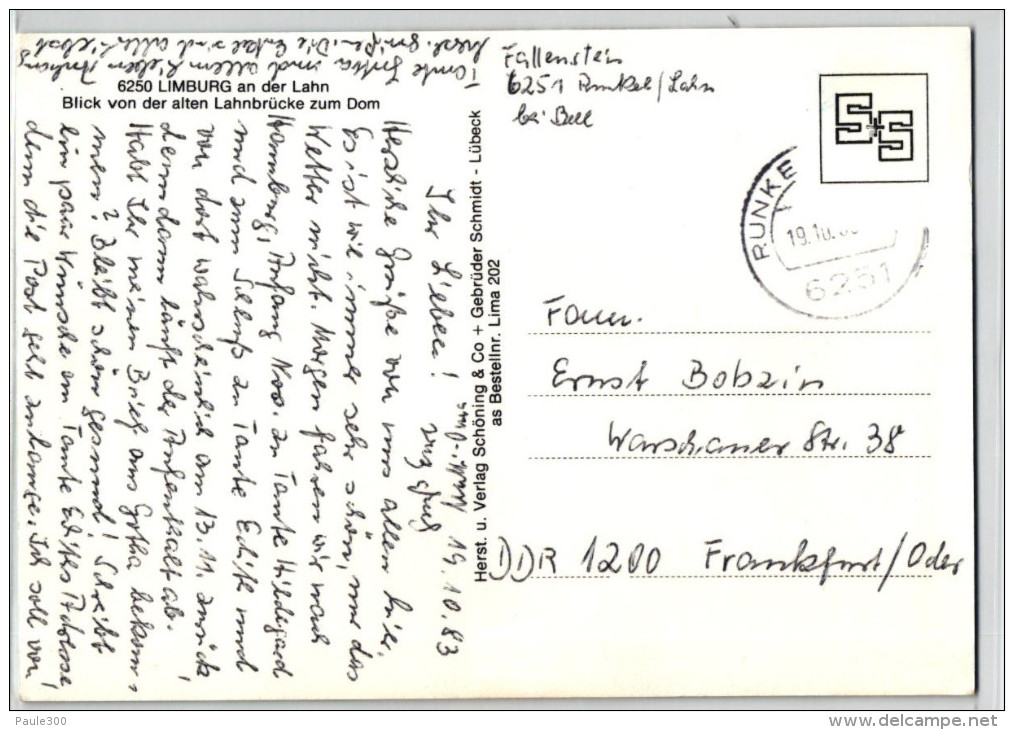 6250 LIMBURG an der Lahn
Blick von der alten Lahnbrücke zum Dom
19.10.83
Ihr Lieben!
Herzliche Grüße von uns allen hier.
Es ist wie immer sehr schön, nur das
Wetter nicht. Morgen fahren wir nach
Hamburg, Anfang Nov. zu Tante Hildegard
und zum Schluß zu Tante Edith und
von dort wahrscheinlich am 13.11. zurück
denn dann läuft der Aufenthalt ab.
Habt Ihr meinen Brief aus Gotha bekom-
men? Bleibt schön gesund! Schreibt
ein paar Wünsche an Tante Ediths Adresse,
denn die Post geht so lange. Ich soll von
Tante Jutta und allem lieben Anhang
herzl. grüßen. Die Enkel sind allerliebst
Herst. u. Verlag Schöning & Co + Gebrüder Schmidt - Lübeck
as Bestellnr. Lima 202
Fallenstein
6251 Runkel/Lahn
bei
SS
RUNKE
19.10.
6251
Fam.
Ernst Bobzin
Warschauer Str. 38
DDR 1200 Frankfurt/Oder
Paule300
www.delcampe.net